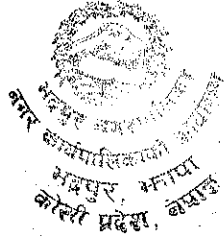 भद्रपुर नगरपालिका
नगर कार्यपालिकाको कार्यालय
भद्रपुर, झापा
कोशी प्रदेश, नेपाल